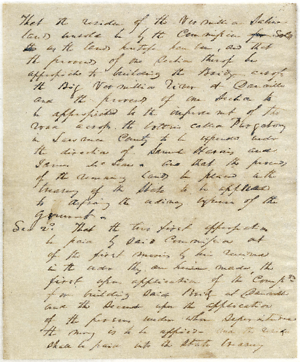 That the residue of the Vermilion Saline
lands would be by the Commission sold
as the lands heretofore have been, and that
the proceeds of one Section thereof be
appropriated to building the Bridge across
the Big Vermilion River at Danville
and the proceeds of one Section to
be appropriated to the improvement of the
road across the bottom called Purgatory
in Lawrence County to be expended under
the direction of Samuel Harris and
James and that the proceeds
of the remaining lands be placed in the
treasury of the State to be applied
to defraying the ordinary expenses of the
Government
Sec 2d. That the two first appropriations
be paid by said Commissioner out
of the first moneys by him received
in the order they are herein made, the
first upon application of the
for building said Bridge at Danville
and the Second upon the application
of the persons under whose Superintendence
the money is to be applied and the residue
shall be paid into the State treasury